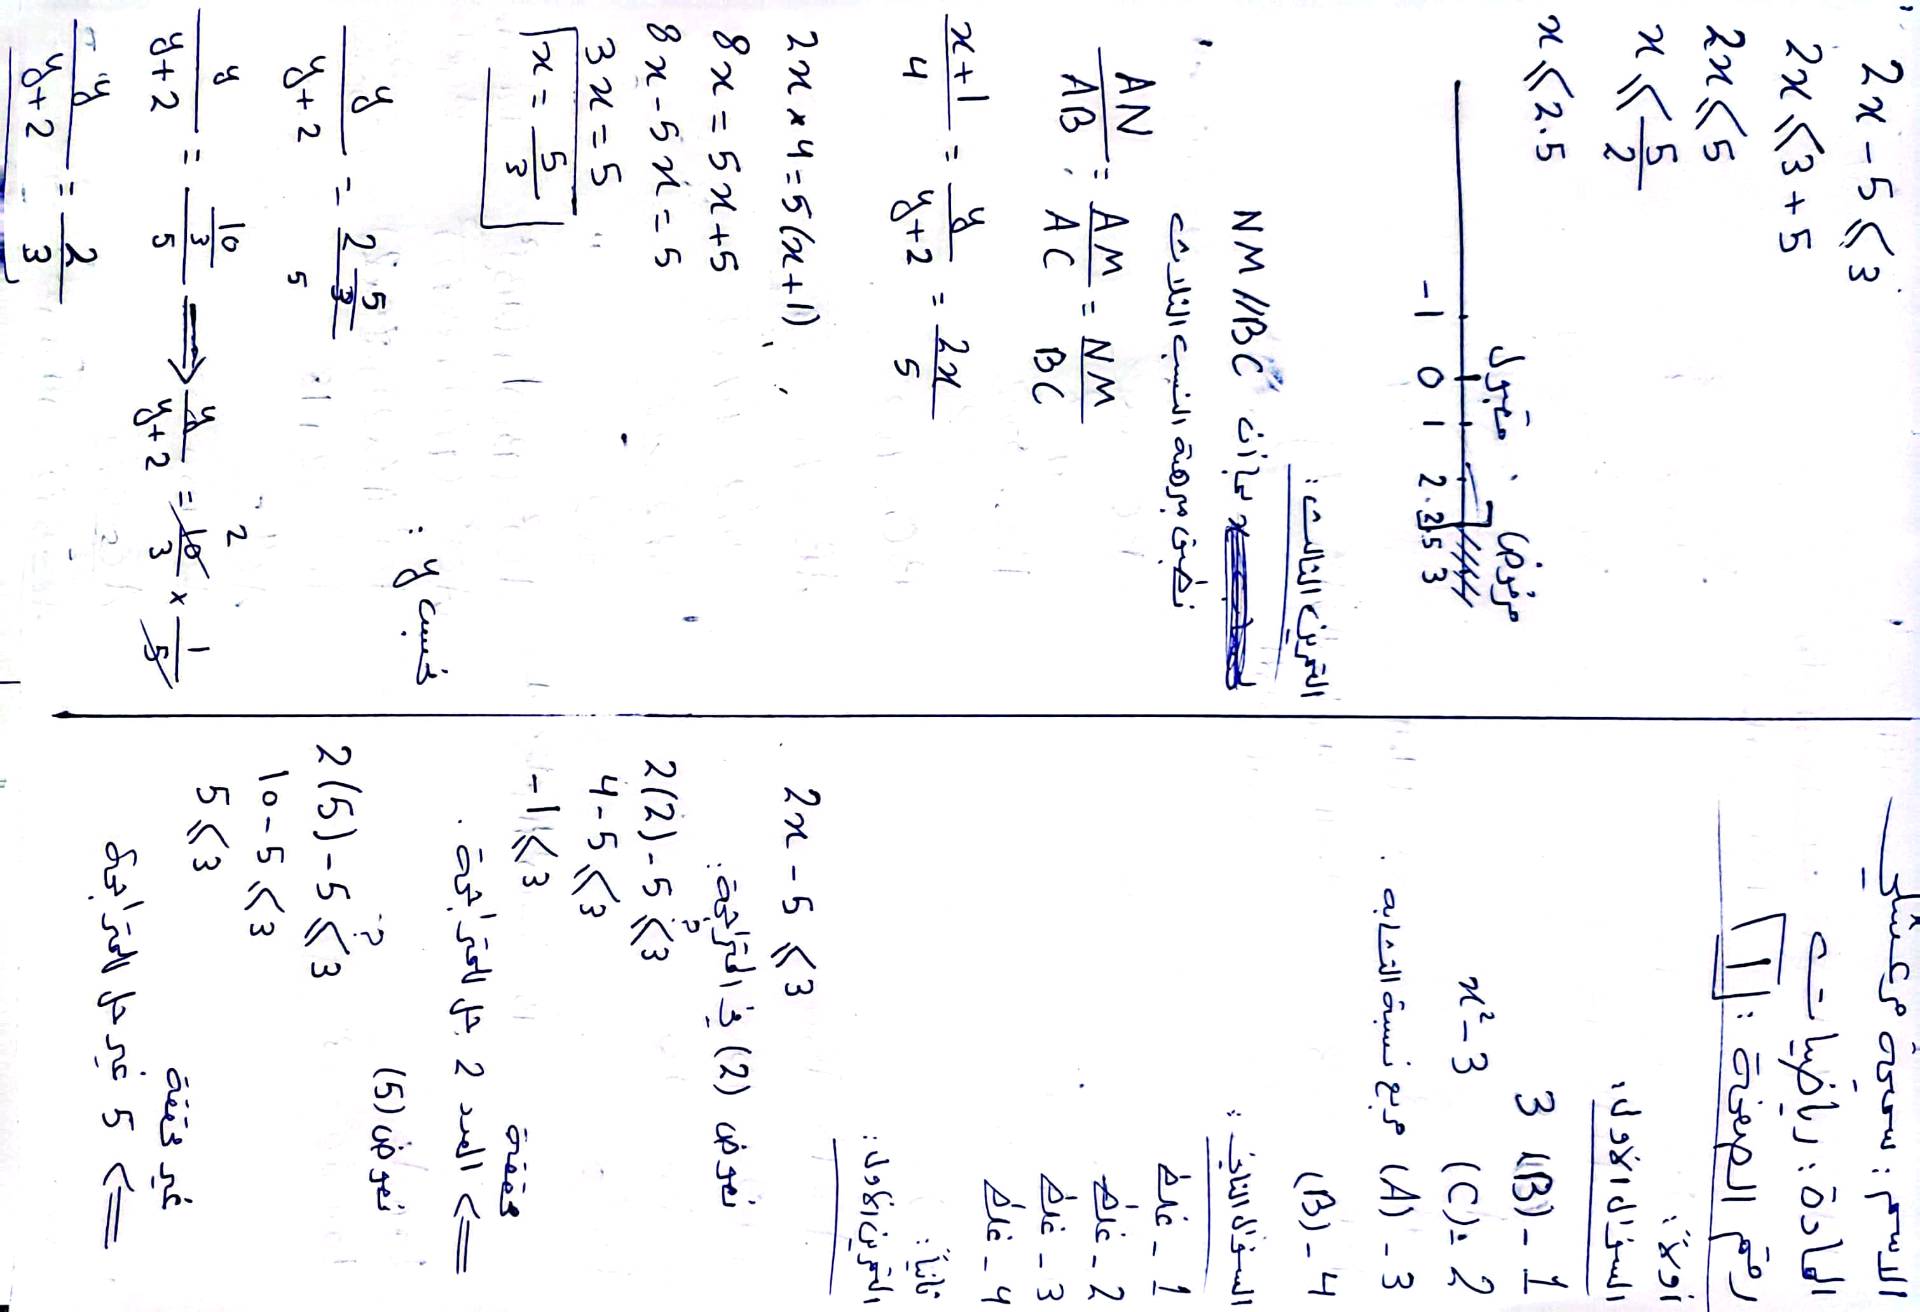 الاسم: سميحة مرعشلي
المادة: رياضيات
رقم الصفحة: 1
أولاً:
السؤال الأول:
1- (B) 3
2- (C) x² - 3
3- (A) مربع نسبة التشابه.
4- (B)
السؤال الثاني:
1- غلط
2- غلط
3- غلط
4- غلط
ثانياً:
التمرين الأول:
2x - 5 ⩽ 3
نعوض (2) في المتراجحة:
2(2) - 5 ⩽? 3
4 - 5 ⩽ 3
-1 ⩽ 3
محققة
<= العدد 2 حل للمتراجحة.
نعوض (5)
2(5) - 5 ⩽? 3
10 - 5 ⩽ 3
5 ⩽ 3
غير محققة
<= 5 غير حل للمتراجحة
2x - 5 ⩽ 3
2x ⩽ 3 + 5
2x ⩽ 5
x ⩽ 5/2
x ⩽ 2.5
مقبول مرفوض
-1 0 1 2 2.5 3
التمرين الثالث:
بما أن NM // BC
نطبق مبرهنة النسب الثلاث
AN/AB = AM/AC = NM/BC
x+1/4 = y/y+2 = 2x/5
2x × 4 = 5(x+1)
8x = 5x + 5
8x - 5x = 5
3x = 5
x = 5/3
نحسب y:
y/y+2 = 2 5/3 / 5
y/y+2 = 10/3 / 5 => y/y+2 = 10/3 × 1/5
2
y/y+2 = 2/3